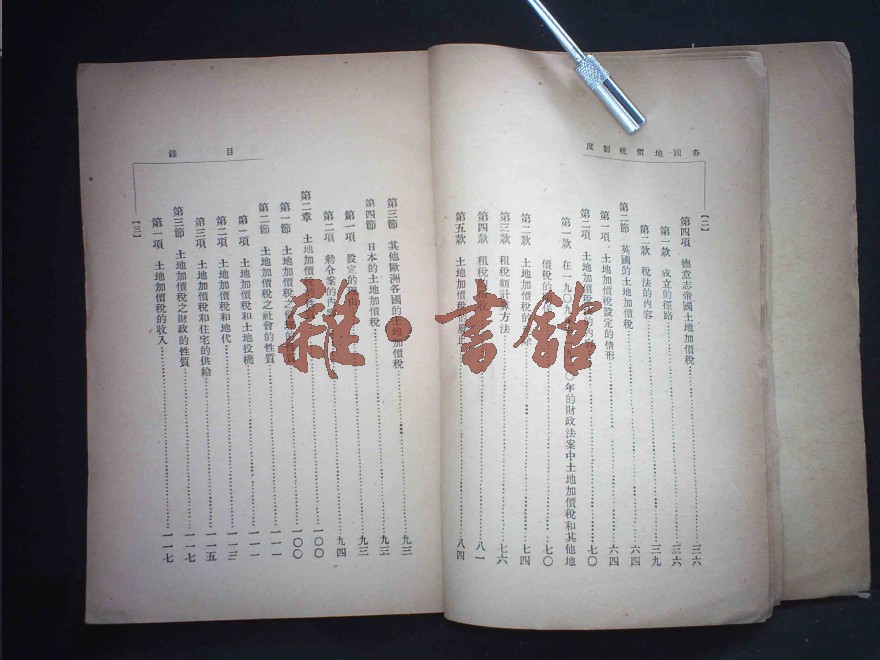 各國地價稅制度
【二】
第四項 德意志帝國土地加價稅 三六
第一款 成立的徑路 三六
第二款 稅法的內容 三九
第二節 英國的土地加價稅 六四
第一項 土地加價稅設定的情形 六四
第二項 土地加價稅的內 七〇
第一款 在一九〇九 〇年的財政法案中土地加價稅和其他地
價稅的 七〇
第二款 土地加價稅的 七四
第三款 租稅額計算方法 七六
第四款 租稅 收 八一
第五款 土地加價稅 廢止 八四
目錄
第三節 其他歐洲各國的土地加價稅 九三
第四節 日本的土地加價稅 九三
第一項 設定的理由 九四
第二項 勅令案的內容 一〇〇
第二章 土地加價稅的 一〇〇
第一節 土地加價稅之 的性質 一一一
第二節 土地加價稅之社會的性質 一一一
第一項 土地加價稅和土地投機 一一三
第二項 土地加價稅和地代
第三項 土地加價稅和住宅的供給 一一五
第三節 土地加價稅之財政的性質 一一七
第一項 土地加價稅的收入 一一七
【三】
雜·書館